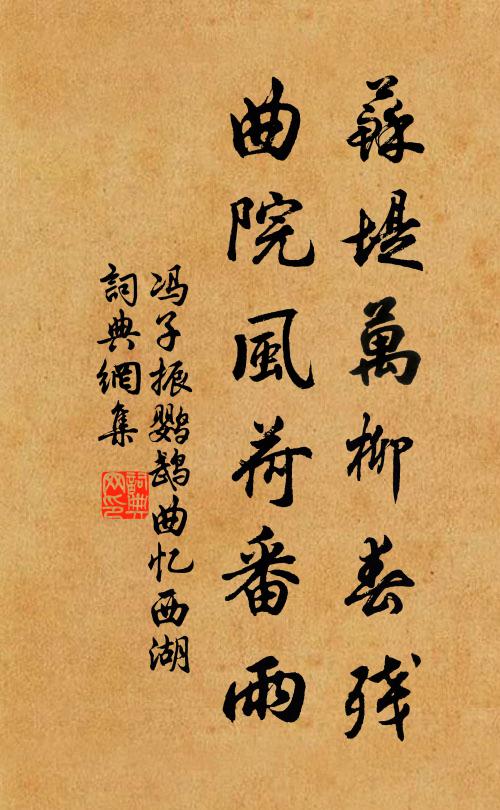 蘇堤萬柳春残
曲院風荷番雨
冯子振鹦鹉曲忆西湖
詞典網集
詞典
网印